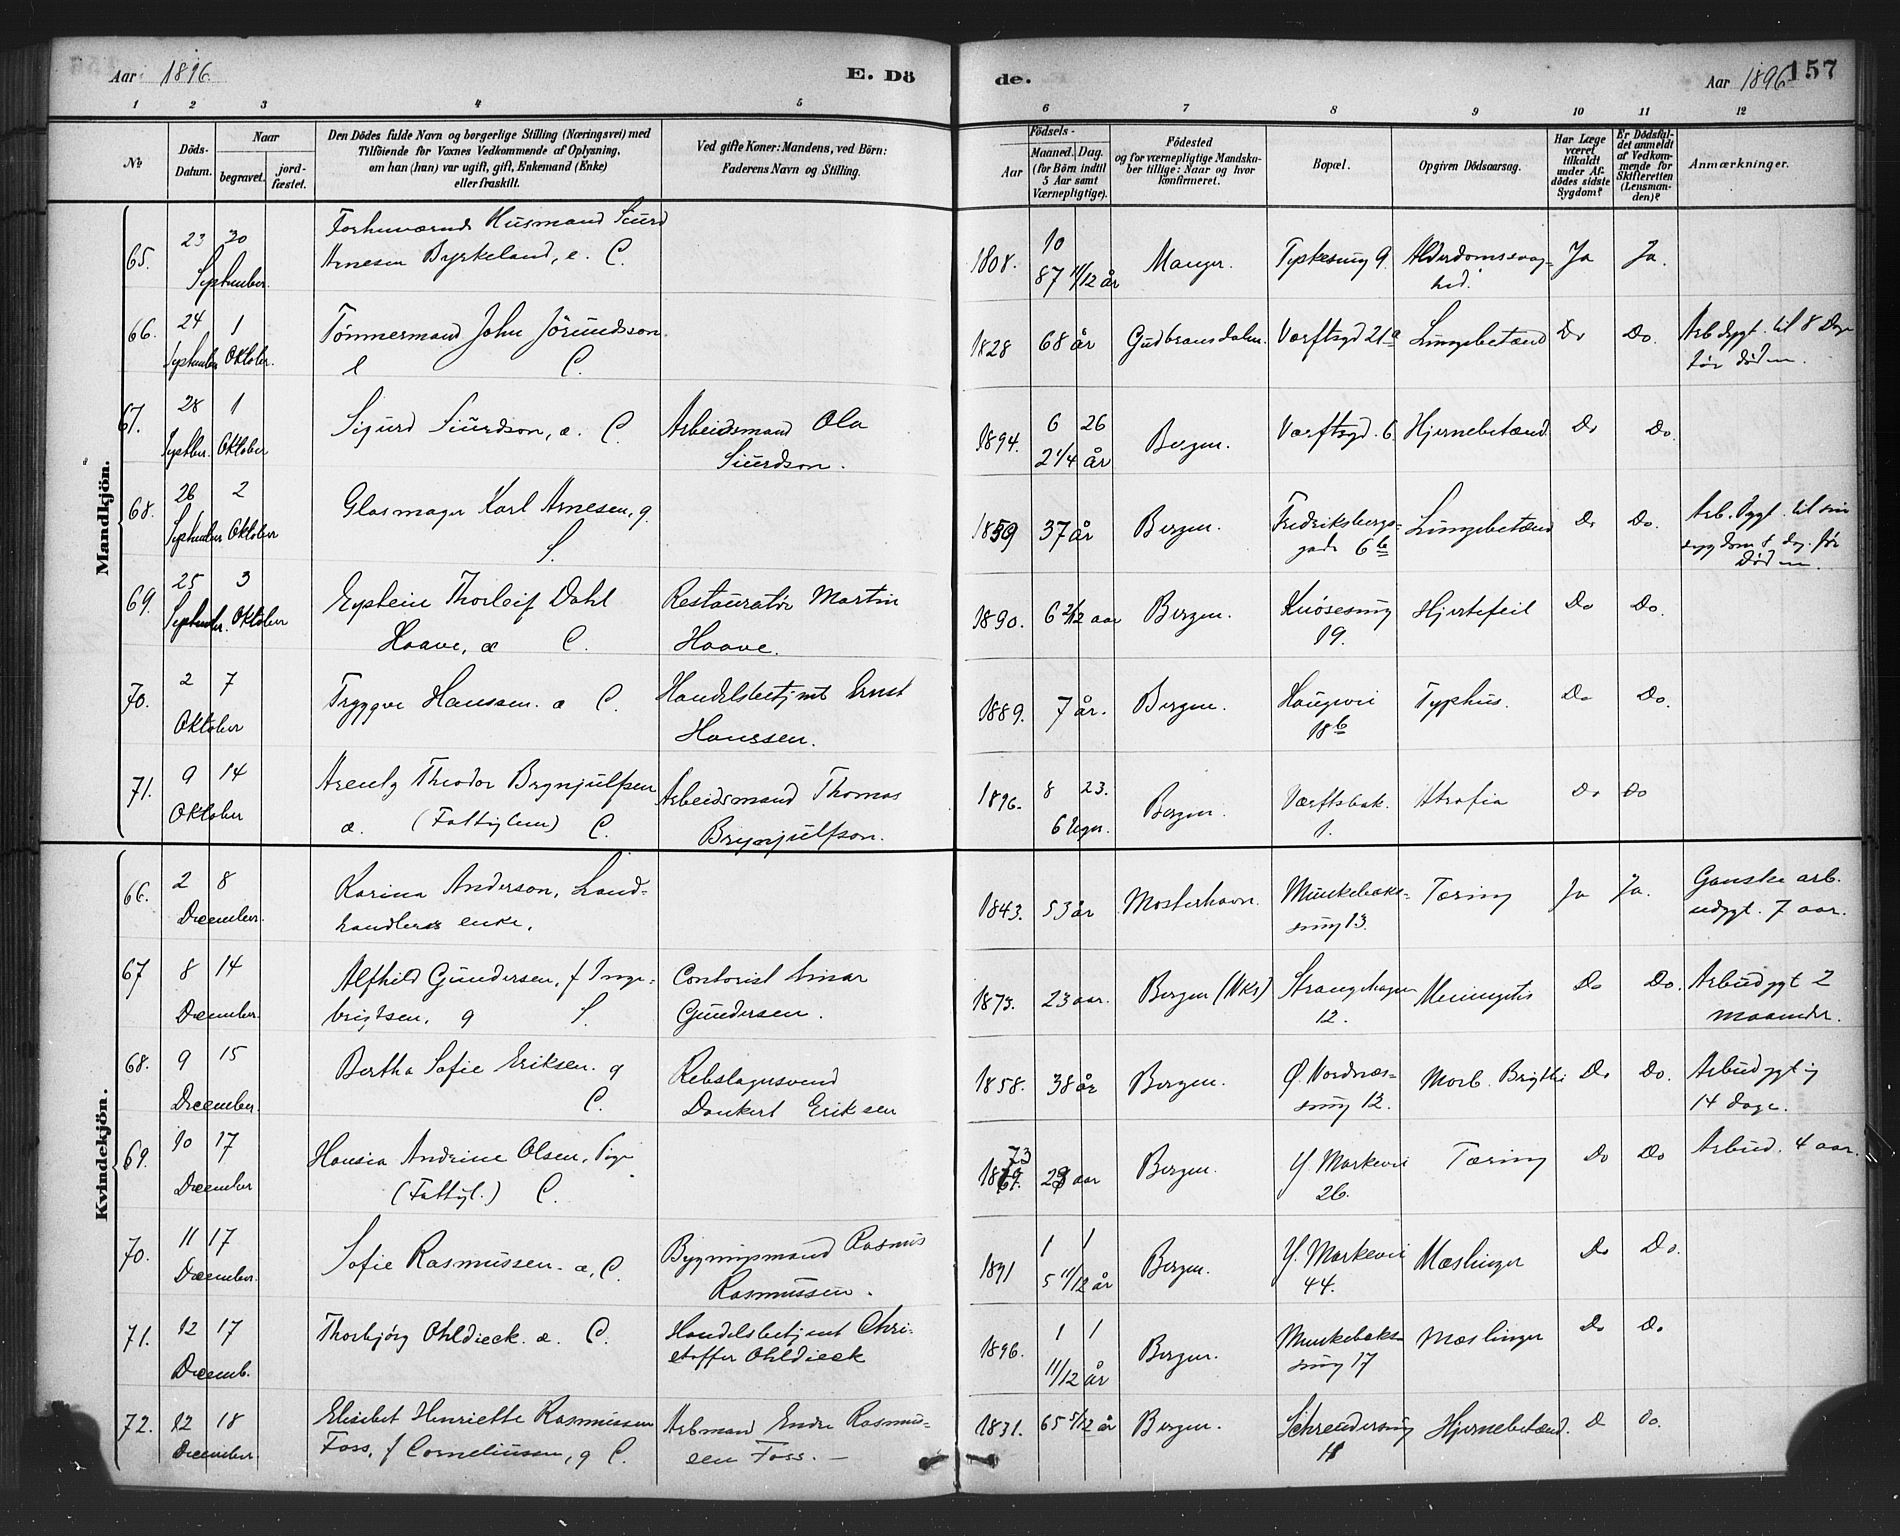 Aar 1896 E. Dö
de. Aar 1896 157
1 2 3 4 5 6 7 8 9 10 11 12
No
Döds-
Datum.
Naar
begravet.
jord-
fæstet.
Den Dödes fulde Navn og borgerlige Stilling (Næringsvei) med
Tilföiende for Voxnes Vedkommende af Oplysning,
om han (hun) var ugift, gift, Enkemand (Enke)
eller fraskilt.
Ved gifte Koner: Mandens, ved Börn:
Faderens Navn og Stilling.
Födsels-
Aar
Maaned. Dag.
(for Börn indtil
5 Aar samt
Værnepligtige).
Födested
og for værnepligtige Mandska-
ber tillige: Naar og hvor
konfirmeret.
Bopæl.
Opgiven Dödsaarsag.
Har Læge
været
tilkaldt
under Af-
dödes sidste
Sygdom?
Er Dödsfal-
det anmeldt
af Vedkom-
mende for
Skifteretten
(Lensman-
den)?
Anmærkninger.
Mandkjön.
65. 23 30 September Forhenværende Husmand Siurd
Arnesen Byrkeland, e. C.
1808. 10 87 11/12 år Manger. Tyskesmug 9. Alderdomssvag-
hed. Ja Ja.
66. 24 September 1 Oktober. Tömmermand John Jörundsson
e C.
1828 68 år Gudbransdalen. Værftsgd 21a Lungebetænd Do Do. Arb.dygt. til 8 Dage
før døden.
67. 28 Septbr. 1 Oktober Sigurd Siurdson, æ. C. Arbeidsmand Ola
Siurdson.
1894. 6 26 2 1/4 år Bergen. Værftsgd. 6. Hjernebetænd. Do Do.
68. 26 September 2 Oktober Glasmager Karl Arnesen, g.
S.
1859 37 år Bergen. Fredriksbergs-
gade 6b Lungebetænd Do Do. Arb. dygt. til sin
sygdom 8 dag. før
Døden.
69. 25 September. 3 Oktober Eystein Thorleif Dahl
Haave, æ C. Restauratør Martin
Haave.
1890. 6 2/12 aar Bergen. Knøsesmug
19. Hjertefeil Do Do.
70. 2 7 Oktober Tryggve Hanssen. æ C. Handelsbetjent Ernst
Hanssen.
1889. 7 år. Bergen. Haugevei
18b Typhus. Do Do.
71. 9 14 Oktober Arentz Theodor Brynjulfsen
æ. (Fattiglem) C. Arbeidsmand Thomas
Brynjulfson.
1896. 8 23. 6 Uger. Bergen. Værftsbak.
1. Atrofia Do Do
Kvindekjön.
66. 2 8 December. Karina Anderson, Land-
handlers enke.
1843. 53 år Mosterhavn. Munkebæks-
smug 13. Tæring Ja Ja. Ganske arb.
udygt. 7 aar.
67 8 14 December. Alfhild Gundersen, f Inge-
brigtsen, g S. Contorist Einar
Gundersen.
1873. 23 aar. Bergen (NKs) Strangehagen
12. Meningitis Do Do. Arbudygt 2
maaneder.
68. 9 15 December. Bertha Sofie Eriksen. g
C. Rebslagersvend
Dankert Eriksen
1858. 38 år Bergen. Ø. Nordnæs-
smug 12. Morb. Brigthi Do Do. Arbudygtig
14 dage.
69. 10 17 December Hansia Andrine Olsen, Pige
(Fattigl.) C.
73 1869. 23 aar Bergen. Y. Markevei
26. Tæring Do Do Arbud. 4 aar.
70. 11 17 December. Sofie Rasmussen. æ, C. Bygningsmand Rasmus
Rasmussen.
1891 1 1 5 11/12 år Bergen. Y. Markevei
44. Mæslinger Do Do.
71. 12 17 Decemb. Thorbjørg Ohldieck. æ. C. Handelsbetjent Chri-
stoffer Ohldieck
1896. 1 1 11/12 år Bergen. Munkebæks-
smug 17 Mæslinger Do Do
72. 12 18 December. Elisebet Henriette Rasmussen
Foss, f Corneliussen, g C. Arbmand Endre Rasmus-
sen Foss. –
1831. 65 5/12 år Bergen. Schreudersmug
11 Hjernebetænd. Do Do.